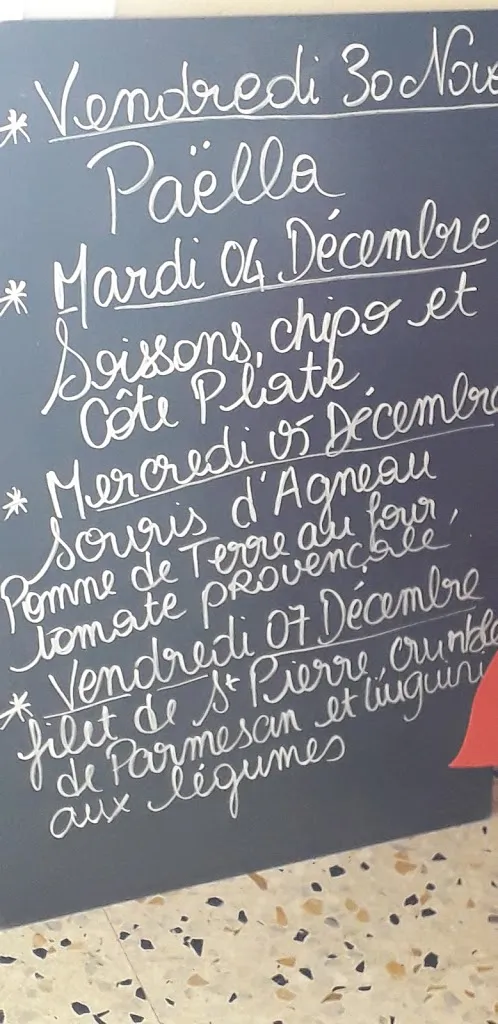 * Vendredi 30 Nov
Paëlla
* Mardi 04 Décembre
Soissons, chipo et
Côte Plate
* Mercredi 05 Décembre
Souris d'Agneau
Pomme de Terre au four,
tomate provençale,
* Vendredi 07 Décembre
filet de St Pierre, crumble
de Parmesan et linguini
aux légumes